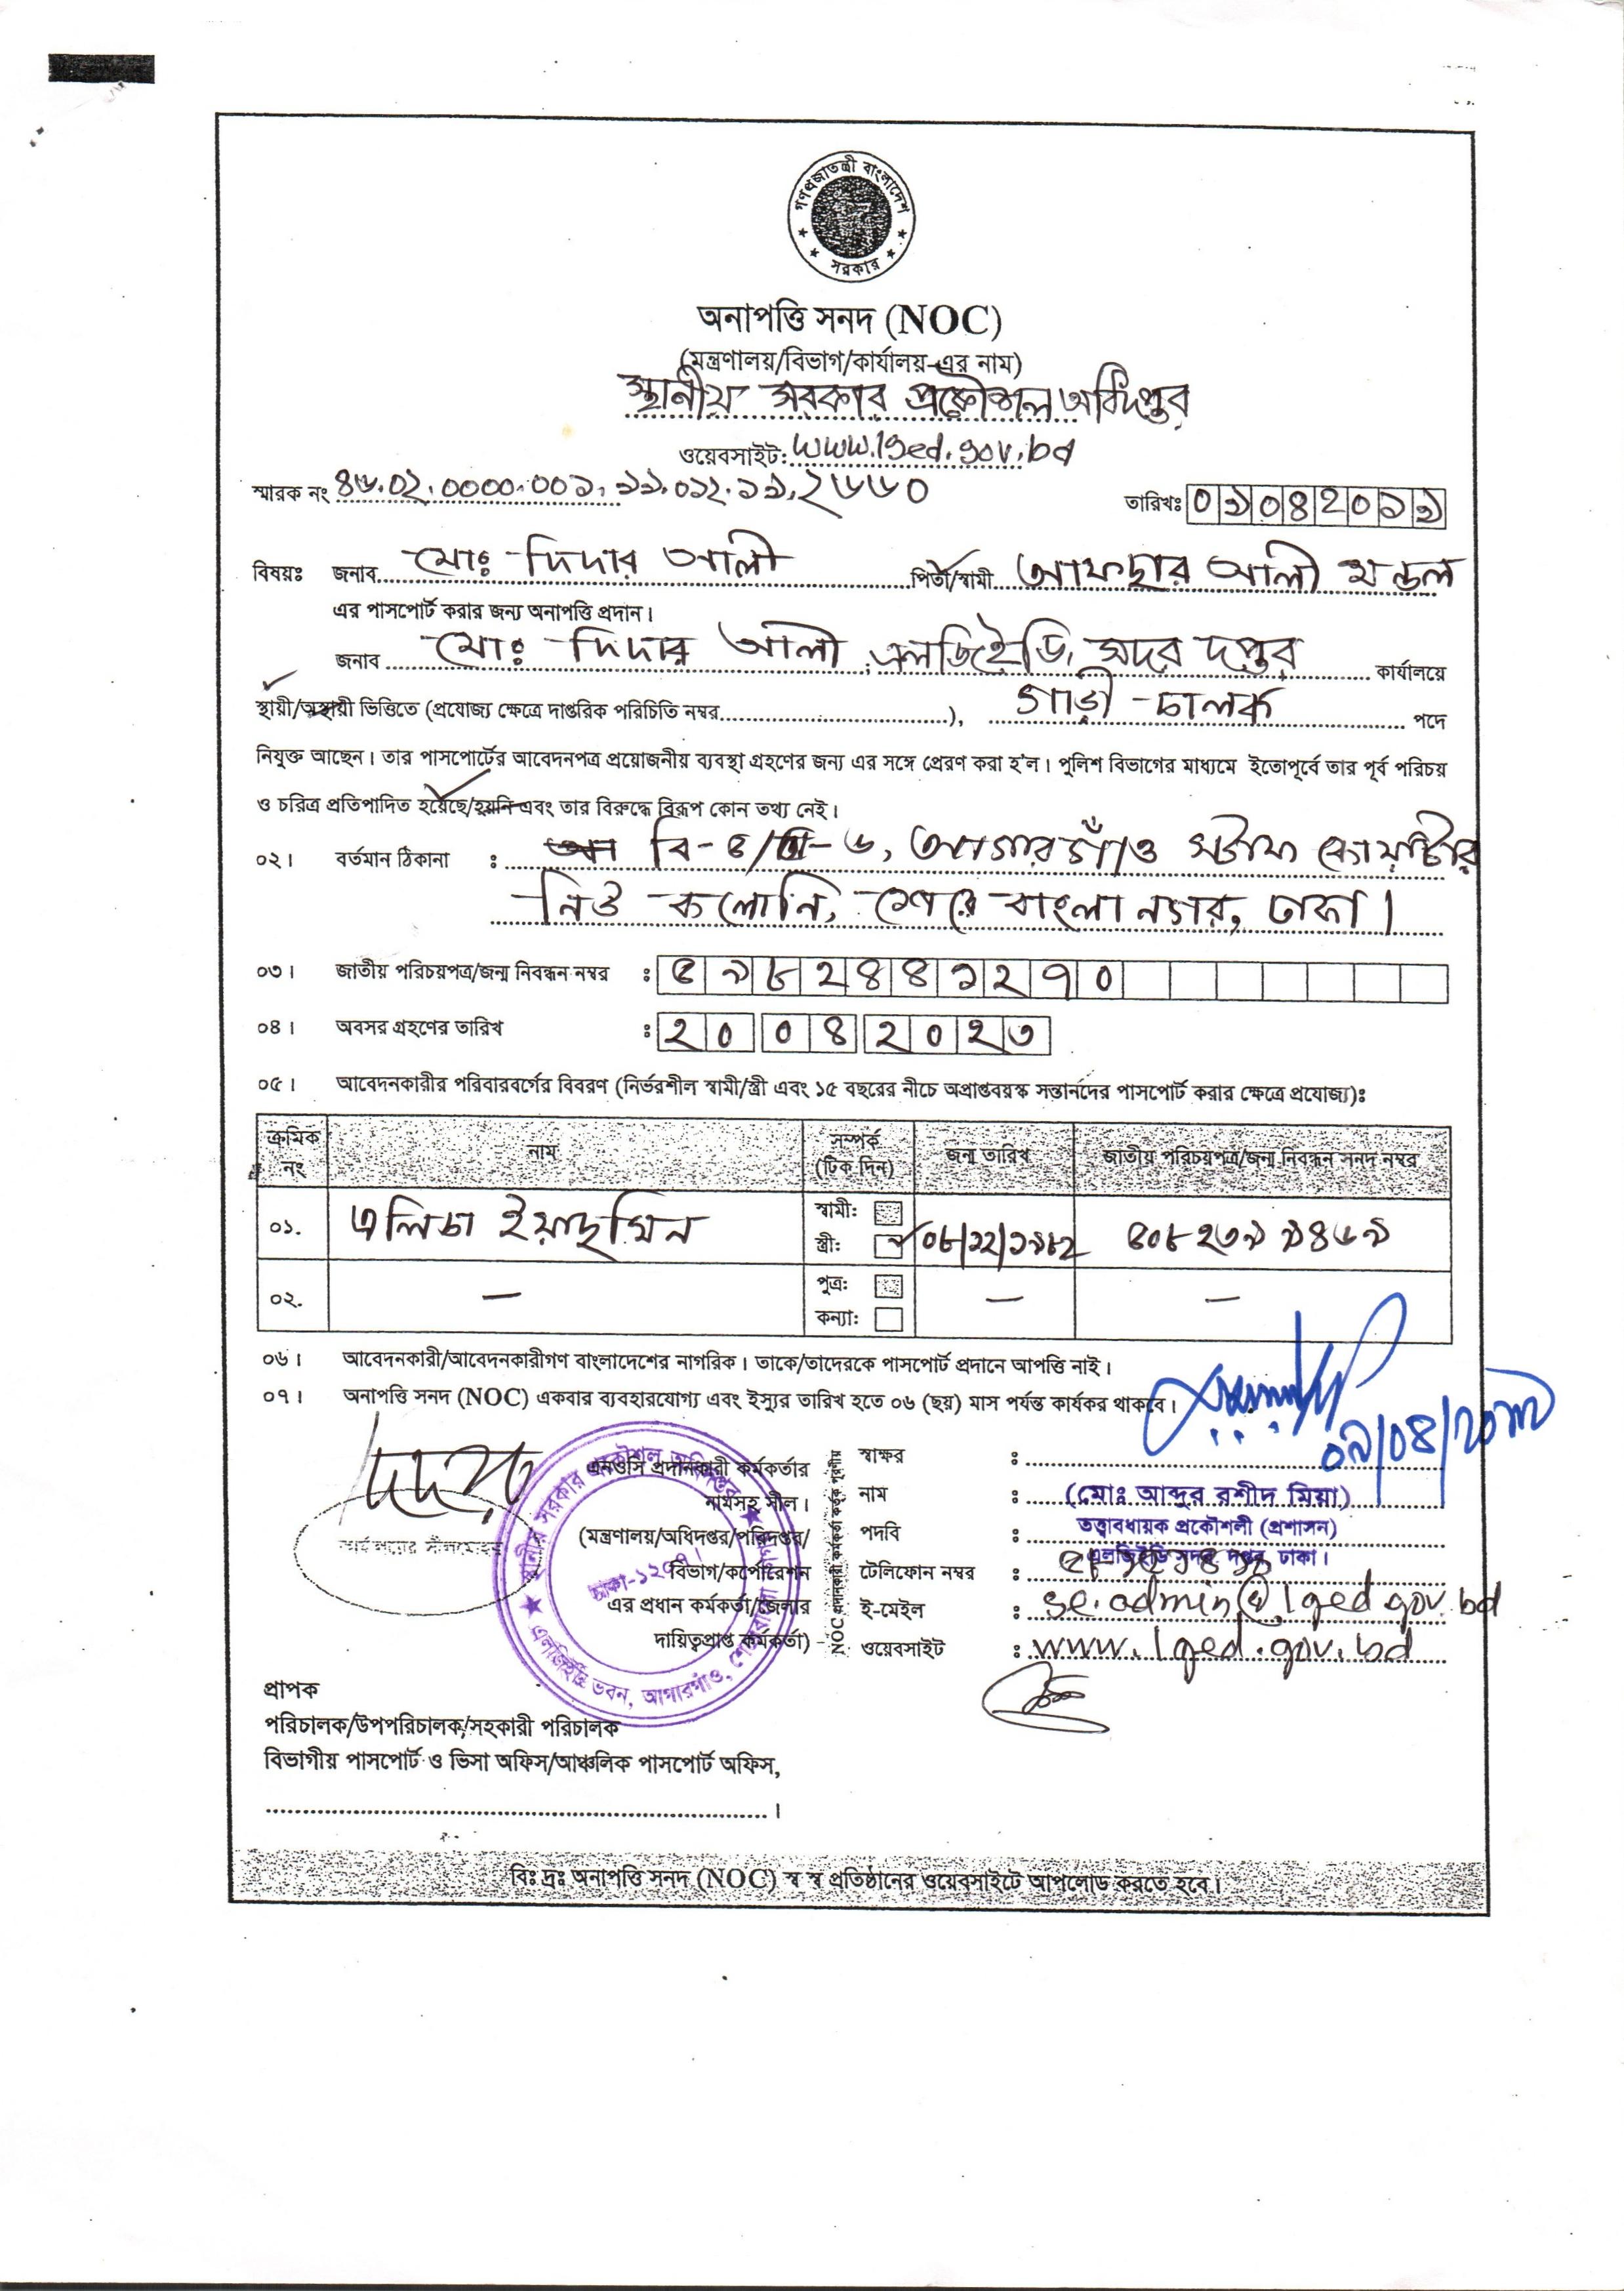 গণপ্রজাতন্ত্রী বাংলাদেশ
সরকার
অনাপত্তি সনদ (NOC)
(মন্ত্রণালয়/বিভাগ/কার্যালয়-এর নাম)
স্থানীয় সরকার প্রকৌশল অধিদপ্তর
ওয়েবসাইট: www.lged.gov.bd
স্মারক নং ৪৬.০২.০০০০.০০১.১১.০১২.১৯.২৬৬০ তারিখঃ ০৯০৪২০১৯
বিষয়ঃ জনাব মোঃ দিদার আলী পিতা/স্বামী আফছার আলী মন্ডল
এর পাসপোর্ট করার জন্য অনাপত্তি প্রদান।
জনাব মোঃ দিদার আলী, এলজিইডি, সদর দপ্তর কার্যালয়ে
স্থায়ী/অস্থায়ী ভিত্তিতে (প্রযোজ্য ক্ষেত্রে দাপ্তরিক পরিচিতি নম্বর..............................), গাড়ী চালক পদে
নিযুক্ত আছেন। তার পাসপোর্টের আবেদনপত্র প্রয়োজনীয় ব্যবস্থা গ্রহণের জন্য এর সঙ্গে প্রেরণ করা হ'ল। পুলিশ বিভাগের মাধ্যমে ইতোপূর্বে তার পূর্ব পরিচয়
ও চরিত্র প্রতিপাদিত হয়েছে/হয়নি এবং তার বিরুদ্ধে বিরূপ কোন তথ্য নেই।
০২। বর্তমান ঠিকানা : বি-৫/ -৬, আগারগাঁও স্টাফ কোয়ার্টার
নিউ কলোনি, শেরে বাংলা নগর, ঢাকা।
০৩। জাতীয় পরিচয়পত্র/জন্ম নিবন্ধন নম্বর : ৫৯৮২৪৪১২৭০
০৪। অবসর গ্রহণের তারিখ : ২০ ০৪ ২০২৩
০৫। আবেদনকারীর পরিবারবর্গের বিবরণ (নির্ভরশীল স্বামী/স্ত্রী এবং ১৫ বছরের নীচে অপ্রাপ্তবয়স্ক সন্তানদের পাসপোর্ট করার ক্ষেত্রে প্রযোজ্য)ঃ
ক্রমিক নং নাম সম্পর্ক (টিক দিন) জন্ম তারিখ জাতীয় পরিচয়পত্র/জন্ম নিবন্ধন সনদ নম্বর
০১. এলিচা ইয়াছমিন স্বামী: স্ত্রী: ০৮/১২/১৯৮২ ৪০৮২৩৯৯৪৬৯
০২. – পুত্র: কন্যা: – –
০৬। আবেদনকারী/আবেদনকারীগণ বাংলাদেশের নাগরিক। তাকে/তাদেরকে পাসপোর্ট প্রদানে আপত্তি নাই।
০৭। অনাপত্তি সনদ (NOC) একবার ব্যবহারযোগ্য এবং ইস্যুর তারিখ হতে ০৬ (ছয়) মাস পর্যন্ত কার্যকর থাকবে।
০৯/০৪/২০১৯
এনওসি প্রদানকারী কর্মকর্তার
নামসহ সীল।
(মন্ত্রণালয়/অধিদপ্তর/পরিদপ্তর/
বিভাগ/কর্পোরেশন
এর প্রধান কর্মকর্তা/জেলার
দায়িত্বপ্রাপ্ত কর্মকর্তা)
কার্যালয়ের সীলমোহর
স্থানীয় সরকার প্রকৌশল অধিদপ্তর
এলজিইডি ভবন, আগারগাঁও, শেরেবাংলা নগর
ঢাকা-১২০৭।
NOC প্রদানকারী কর্মকর্তা কর্তৃক পূরণীয়
স্বাক্ষর :
নাম : (মোঃ আব্দুর রশীদ মিয়া)
পদবি : তত্ত্বাবধায়ক প্রকৌশলী (প্রশাসন)
এলজিইডি সদর দপ্তর, ঢাকা।
টেলিফোন নম্বর :
ই-মেইল : se.admin@lged.gov.bd
ওয়েবসাইট : www.lged.gov.bd
প্রাপক
পরিচালক/উপপরিচালক/সহকারী পরিচালক
বিভাগীয় পাসপোর্ট ও ভিসা অফিস/আঞ্চলিক পাসপোর্ট অফিস,
..............................।
বিঃ দ্রঃ অনাপত্তি সনদ (NOC) স্ব স্ব প্রতিষ্ঠানের ওয়েবসাইটে আপলোড করতে হবে।